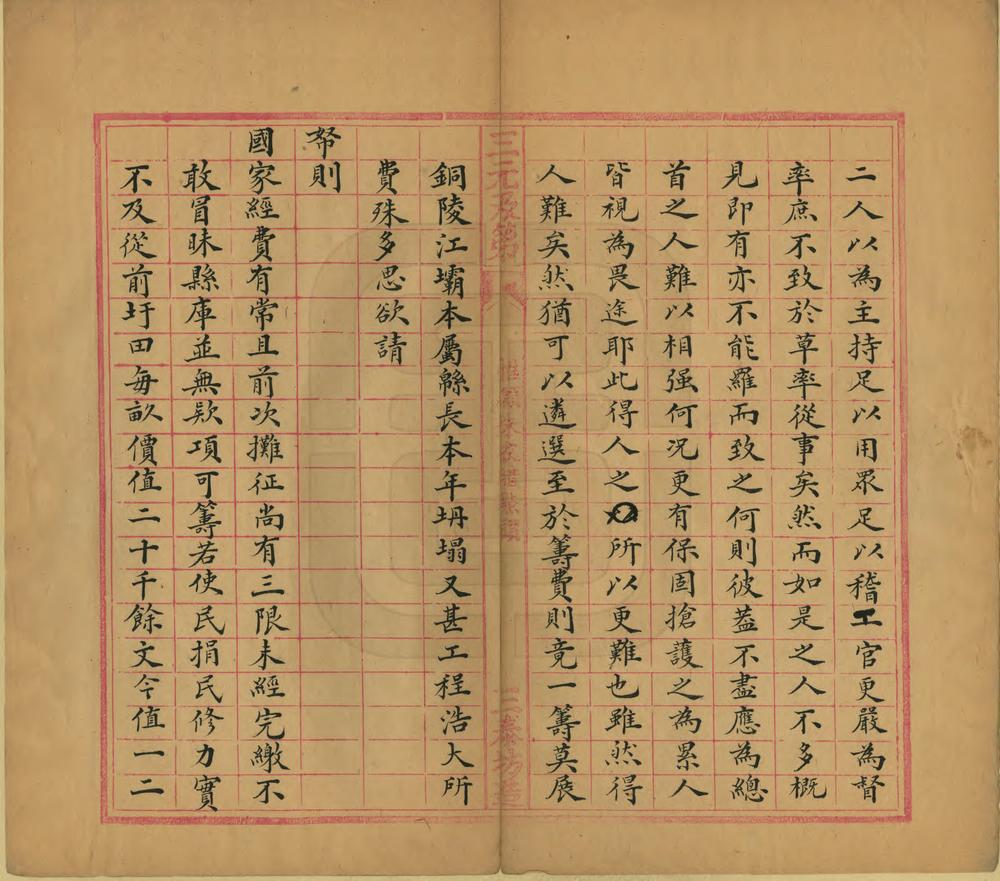 二人以為主持足以用眾足以稽工官更嚴為督
率庶不致於草率從事矣然而如是之人不多概
見即有亦不能羅而致之何則彼蓋不盡應為總
首之人難以相强何况更有保固搶護之為累人
皆視為畏途耶此得人之所以更難也雖然得
人難矣然猶可以遴選至於籌費則竟一籌莫展
三元及第
銅陵江壩本屬緜長本年坍塌又甚工程浩大所
費殊多思欲請
帑則
國家經費有常且前次攤征尚有三限未經完繳不
敢冒昧縣庫並無欵項可籌若使民捐民修力實
不及從前圩田每畝價值二十千餘文今值一二